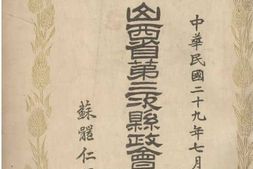 中華民國二十九年七月
山西省第三次縣政會
蘇體仁